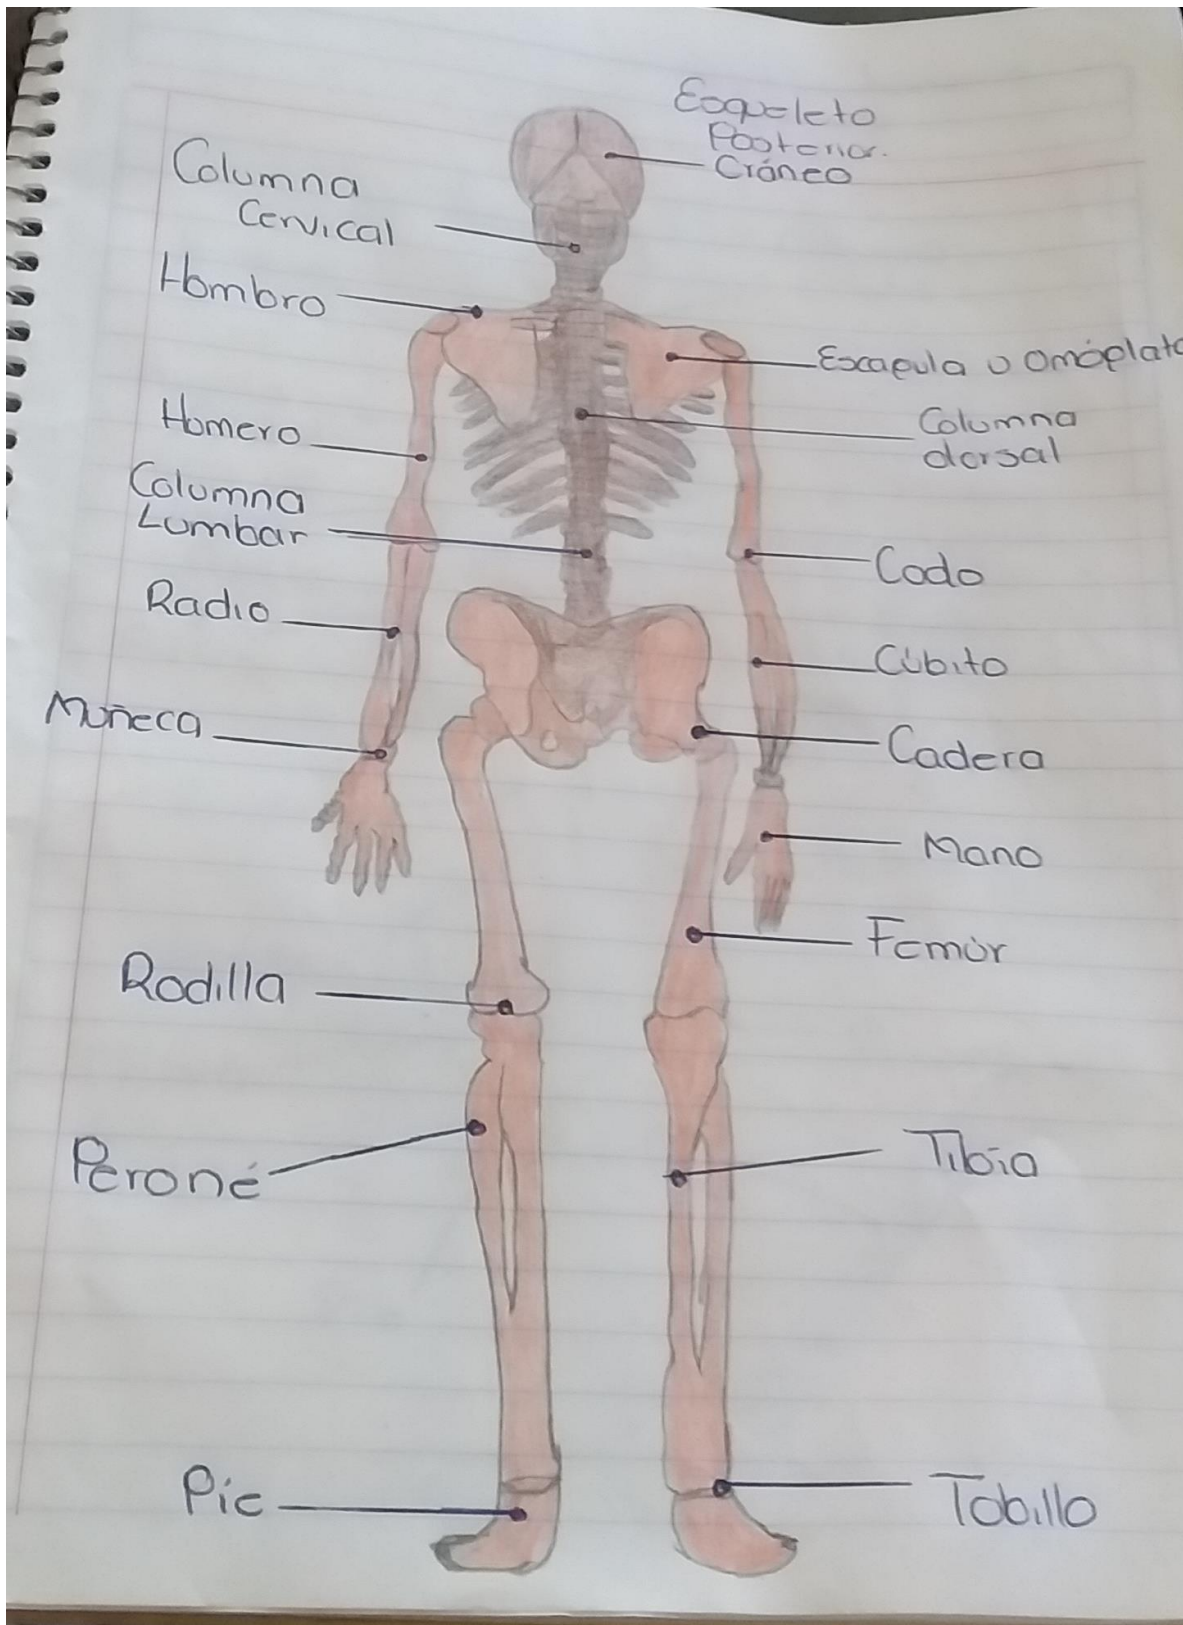 Esqueleto
Posterior.
Cráneo
Columna
Cervical
Hombro
Escapula u omóplato
Homero
Columna
dorsal
Columna
Lumbar
Codo
Radio
Cúbito
Muñeca
Cadera
Mano
Femúr
Rodilla
Peroné
Tibia
Pie
Tobillo